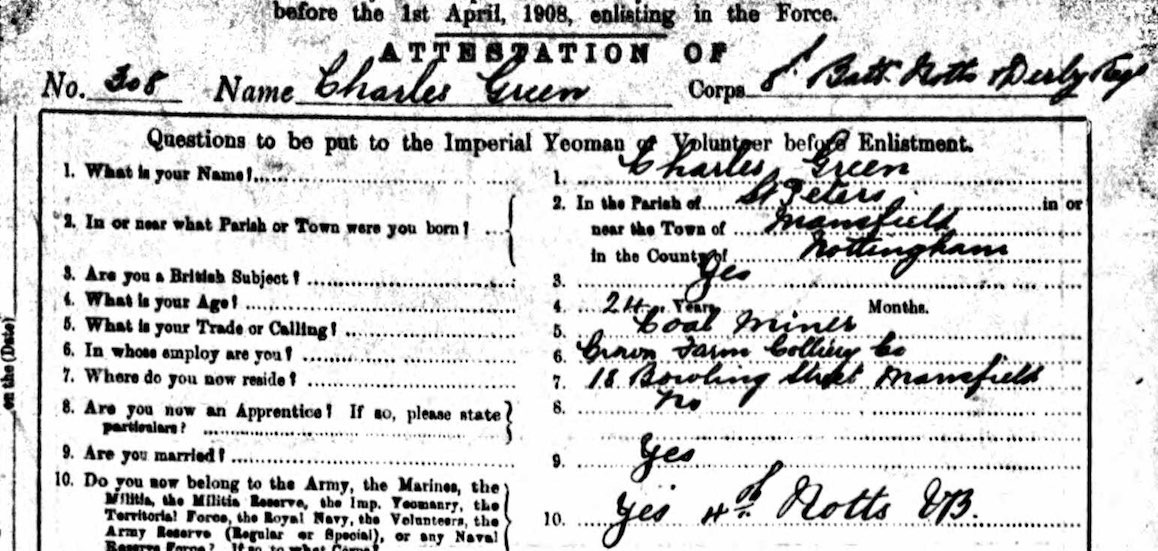 before the 1st April, 1908, enlisting in the Force.
ATTESTATION OF
No. 308 Name Charles Green Corps 8th Batt. Notts & Derby Regt
Questions to be put to the Imperial Yeoman or Volunteer before Enlistment.
1. What is your Name? 1. Charles Green
2. In or near what Parish or Town were you born? 2. In the Parish of St Peters in or
near the Town of Mansfield
in the County of Nottingham
3. Are you a British Subject? 3. Yes
4. What is your Age? 4. 24 Years Months.
5. What is your Trade or Calling? 5. Coal Miner
6. In whose employ are you? 6. Crown Farm Colliery Co
7. Where do you now reside? 7. 18 Bowling Street Mansfield
8. Are you now an Apprentice? If so, please state 8. No
particulars?
9. Are you married? 9. Yes
10. Do you now belong to the Army, the Marines, the
Militia, the Militia Reserve, the Imp. Yeomanry, the
Territorial Force, the Royal Navy, the Volunteers, the
Army Reserve (Regular or Special), or any Naval 10. Yes 4th Notts VB.
Reserve Force? If so, to what Corps?
on the (Date)